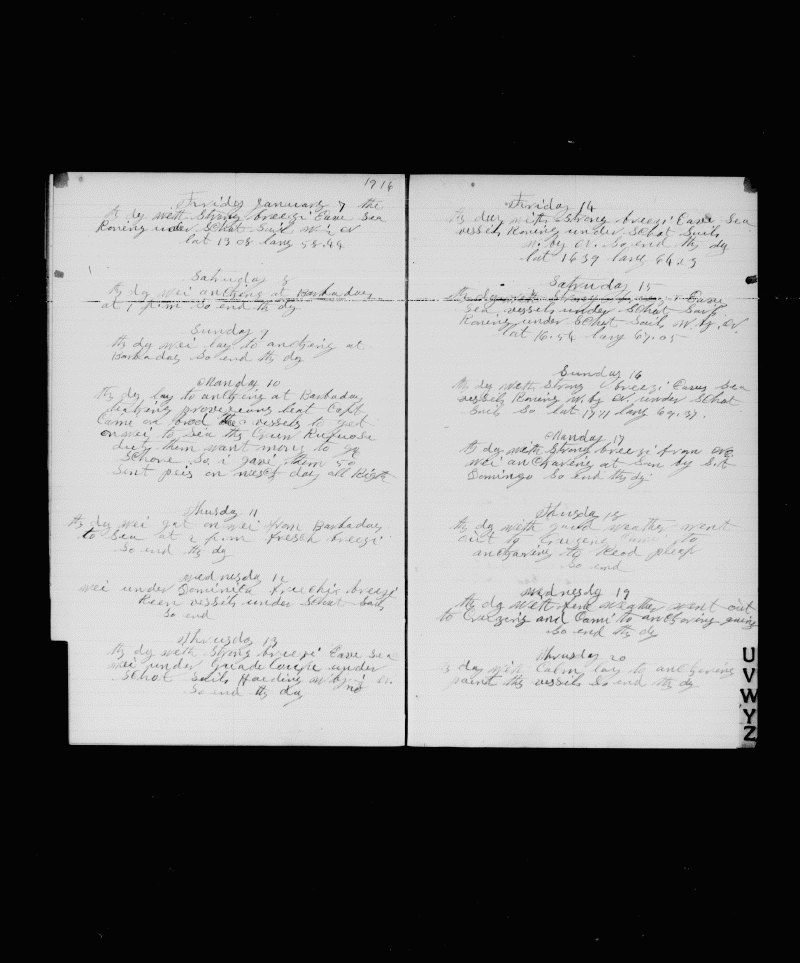 1916
Friday January 7 the
th dy with Strong breezi Eave Sea
Roning under Schot Sails
lat 13 08 lang 58.44
Saturday 8
th dy wei anching at Barbaday
at 1 p.m So end th dy
Sunday 9
th dy wei lay to anching at
Barbaday So end th dy
Manday 10
th dy lay to anching at Barbaday
provezeons beat Capt
Came on brod vissels to get
onwei to Sea th Crun Rufuose
duty them want mony to go
Schore So i gave them 50
Sent peis on nesct day all Right
Thusday 11
th dy wei gat onwei from Barbaday
to Sea at 2 p.m fresch breezi
So end th dy
Wednesday 12
wei under Dominica breezi
Reen vissils under Schot Sails
So end
Thursday 13
th dy with Strong breezi Eave Sea
wei under guadeloupe under
Schot Sails Harding w by
So end th day
Friday 14
th day with Strong breezi Eave Sea
vissils Roning under Schot Sails
w. by N. So end th dy
lat 16 39 lang 64.
Saturday 15
Eave
Sea vissels under Schot Sails
Roning under Schot Sails w. by. N
lat 16.54 lang 67.05
Sunday 16
th dy with Strong breezi Eavey Sea
vissels Roning w. by N. under Schot
Sails So lat 17 11 lang 69.37.
Manday 17
th dy with Strong breezi from
wei anchaning at San by S.t
Domingo So end th dy.
Thusday 18
th dy with good weather went
out to Cruzeng Cami to
anchaning to
So end
Wednesdy 19
th dy with fine weather went out
to Cruizing and Cami to anchoring going
So end th dy
Thursday 20
dy with Calm lay to anchaning
paint th vissels So end th dy
U
V
W
Y
Z